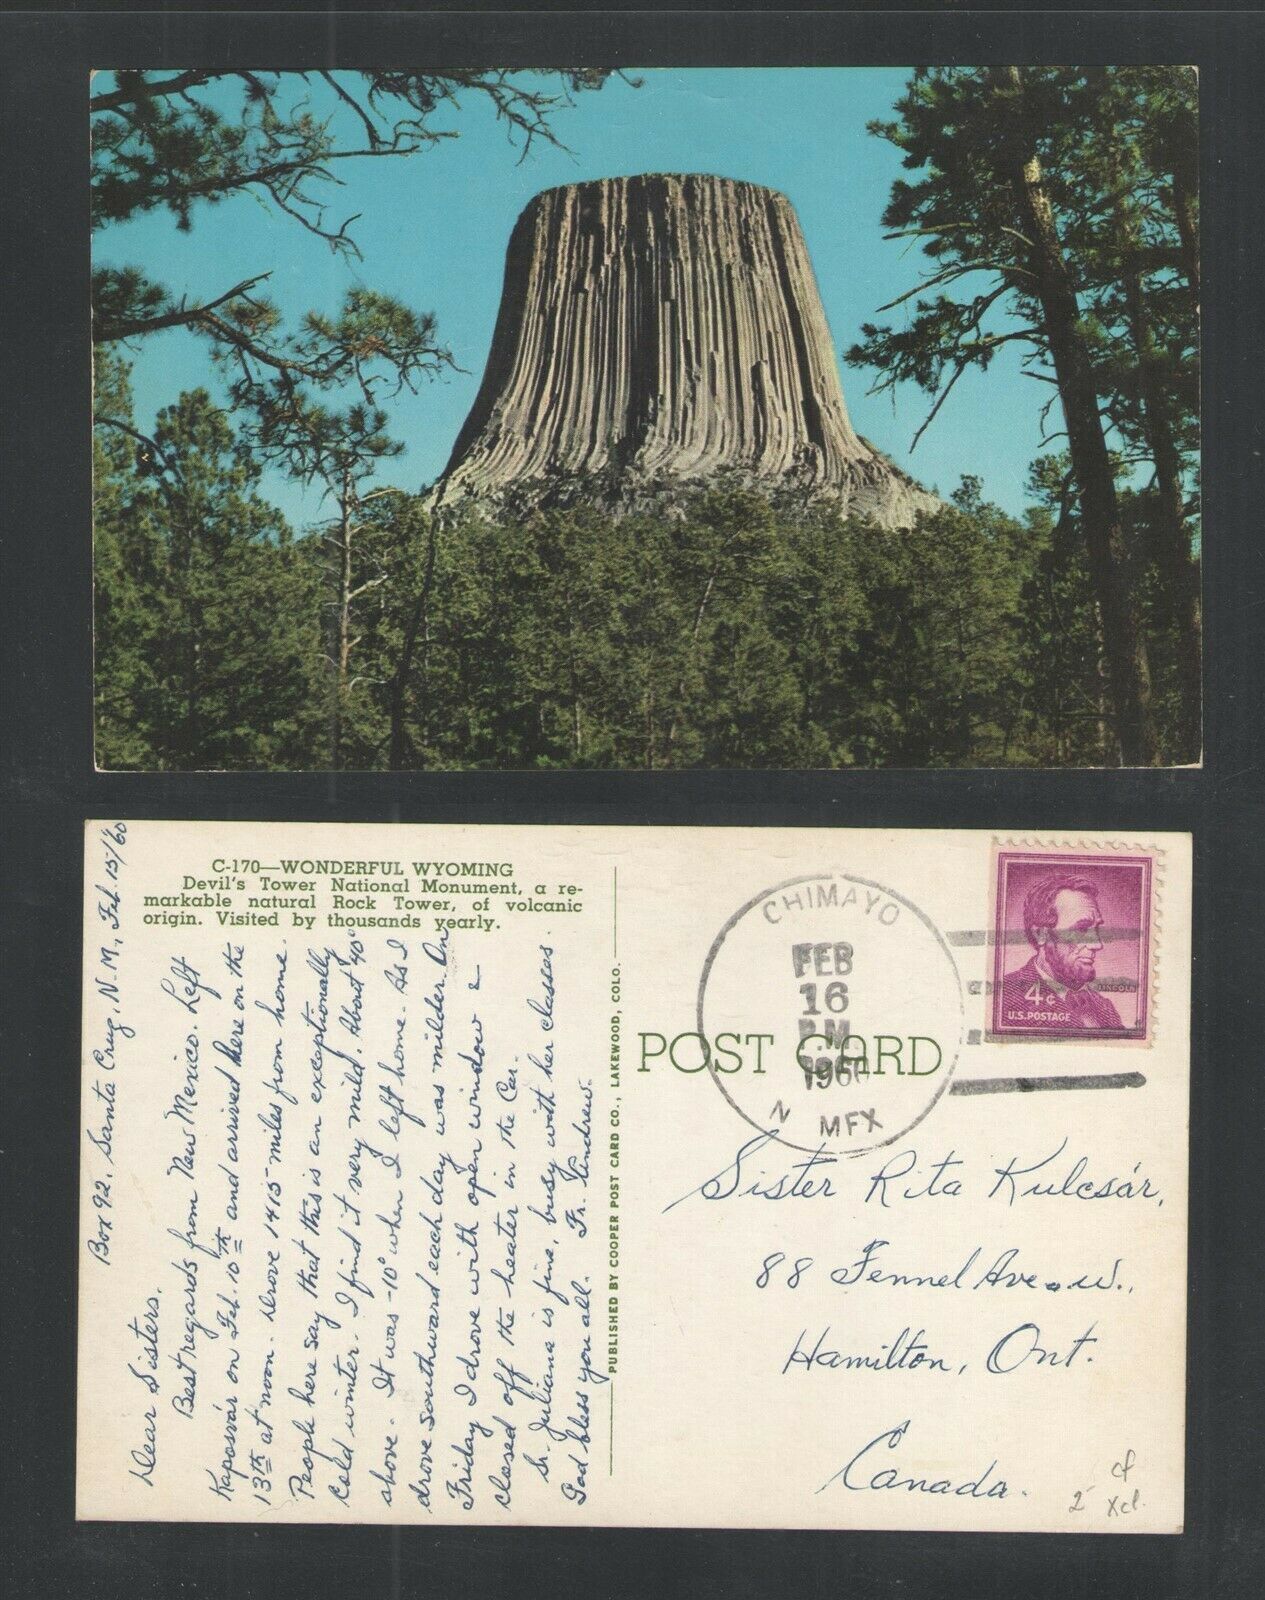 C-170—WONDERFUL WYOMING
Devil's Tower National Monument, a re-
markable natural Rock Tower, of volcanic
origin. Visited by thousands yearly.
Box 92, Santa Cruz, N.M., Feb. 15/60
Dear Sisters,
Best regards from New Mexico. Left
Kaposvár on Feb. 10th and arrived here on the
13th at noon. Drove 1415 miles from home.
People here say that this is an exceptionally
cold winter. I find it very mild. About 40°
above. It was -10° when I left home. As I
drove southward each day was milder. On
Friday I drove with open window &
closed off the heater in the Car.
Sr. Juliana is fine, busy with her classes.
God bless you all. Fr. Andrew.
PUBLISHED BY COOPER POST CARD CO., LAKEWOOD, COLO.
POST CARD
CHIMAYO
FEB
16
P.M.
1960
N MEX
4¢
U.S. POSTAGE
LINCOLN
Sister Rita Kulcsár,
88 Fennel Ave. W.,
Hamilton, Ont.
Canada.
cf
2- Xcl.